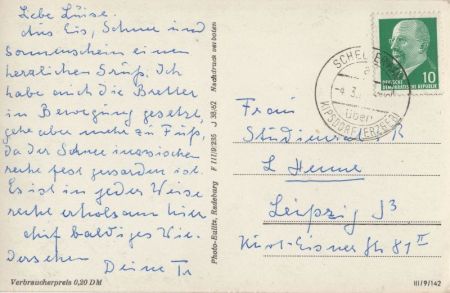 Liebe Luise.
Aus Eis, Schnee und
Sonnenschein einen
herzlichen Gruß. Ich
habe mich die Bretter
in Bewegung gesetzt,
gehe aber mehr zu Fuß,
da der Schnee inzwischen
recht fest geworden ist.
Es ist in jeder Weise
recht erholsam hier
Auf baldiges Wie-
dersehen
Deine
Verbraucherpreis 0,20 DM
Photo-Bulitz, Radeburg F III/9/235 J 38/62 Nachdruck verboten
10
DEUTSCHE
DEMOKRATISCHE REPUBLIK
über
KIPSDORF (ERZGEB)
Frau
Studienrat
L Henne
Leipzig
Kurt-Eisner-Str 81 II
III/9/142